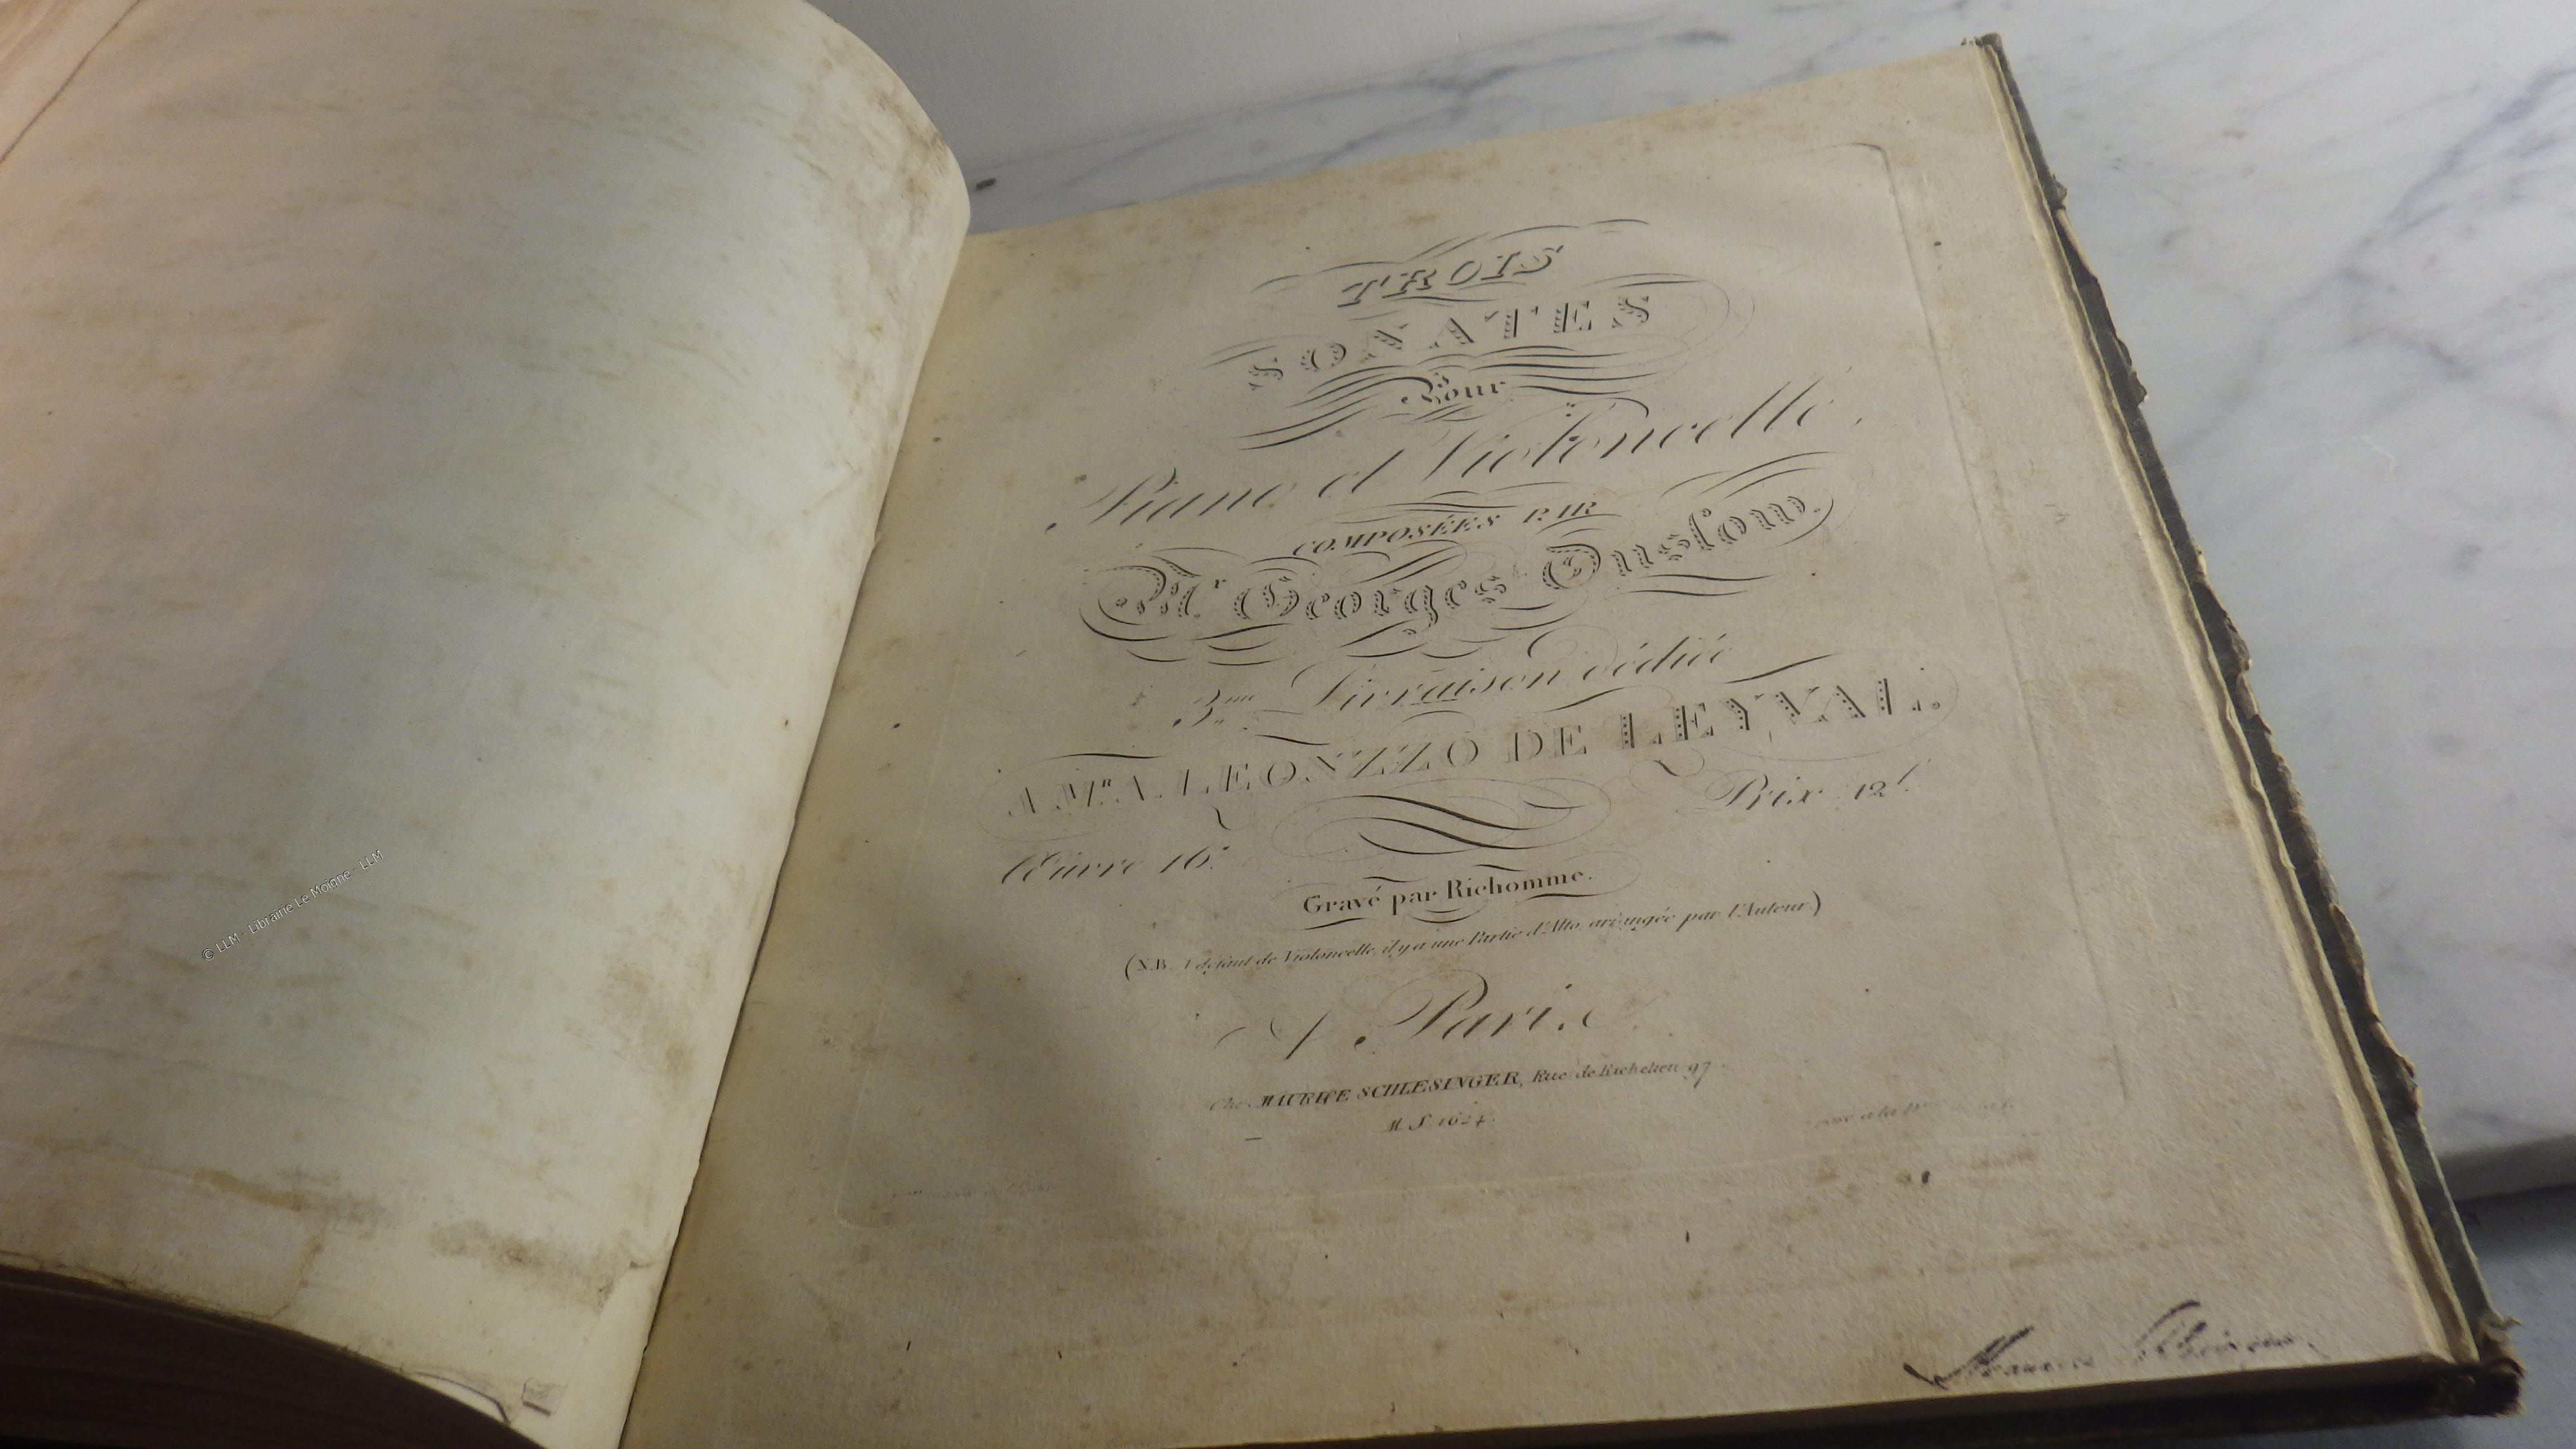 TROIS
SONATES
Pour
Piano et Violoncelle,
COMPOSÉES PAR
Mr Georges Onslow.
3me Livraison dédiée
A Mr A. LEONZZO DE LEYVAL.
Prix 12f.
Œuvre 16.
Gravé par Richomme.
(N.B. A défaut de Violoncelle, il y a une Partie d'Alto, arrangée par l'Auteur.)
A Paris
Chez MAURICE SCHLESINGER, Rue de Richelieu 97.
M. S. 1624.
© LLM - Librairie Le Moigne - LLM